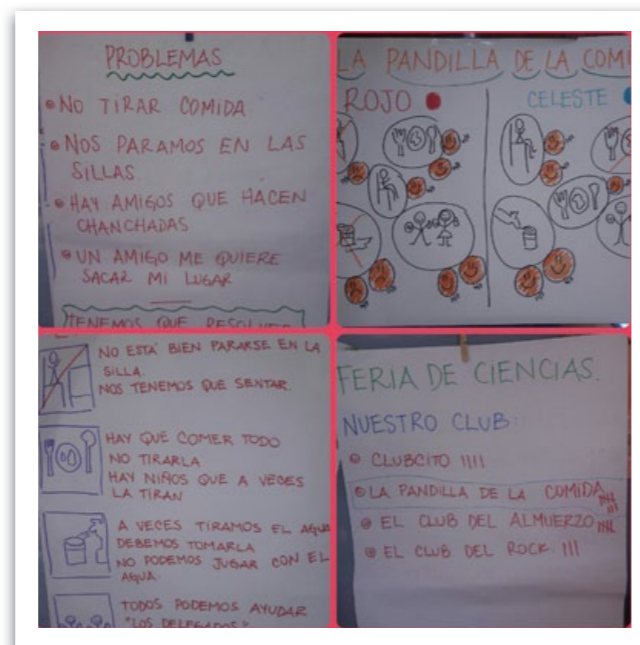 PROBLEMAS
NO TIRAR COMIDA
NOS PARAMOS EN LAS
SILLAS
HAY AMIGOS QUE HACEN
CHANCHADAS
UN AMIGO ME QUIERE
SACAR MI LUGAR
TENEMOS QUE
LA PANDILLA DE LA COMI
ROJO
CELESTE
NO ESTÁ BIEN PARARSE EN LA
SILLA.
NOS TENEMOS QUE SENTAR.
HAY QUE COMER TODO
NO TIRARLA
HAY NIÑOS QUE A VECES
LA TIRAN
A VECES TIRAMOS EL AGUA
DEBEMOS TOMARLA
NO PODEMOS JUGAR CON EL
AGUA.
TODOS PODEMOS AYUDAR
"LOS DELEGADOS"
FERIA DE CIENCIAS.
NUESTRO CLUB:
CLUBCITO IIII
LA PANDILLA DE LA COMIDA
EL CLUB DEL ALMUERZO
EL CLUB DEL ROCK. III